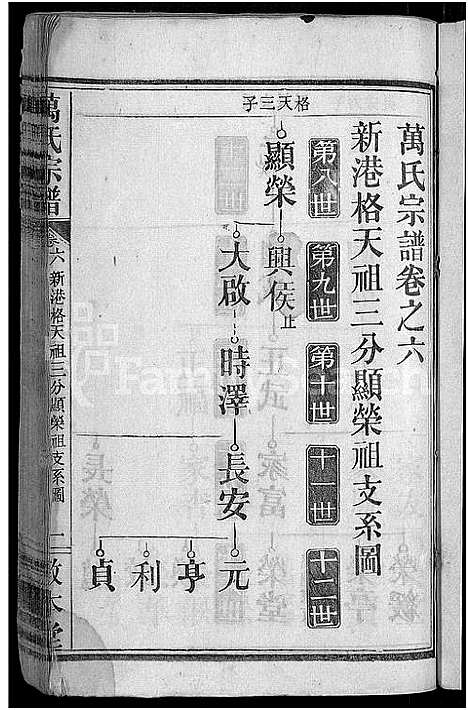 萬氏宗譜卷之六
新港格天祖三分顯榮祖支系圖
第八世
第九世
第十世
十一世
十二世
格天三子
顯榮
興侯止
大啟
時澤
長安
元
亨
利
貞
萬氏宗譜
卷六 新港格天祖三分顯榮祖支系圖
二 敦本堂